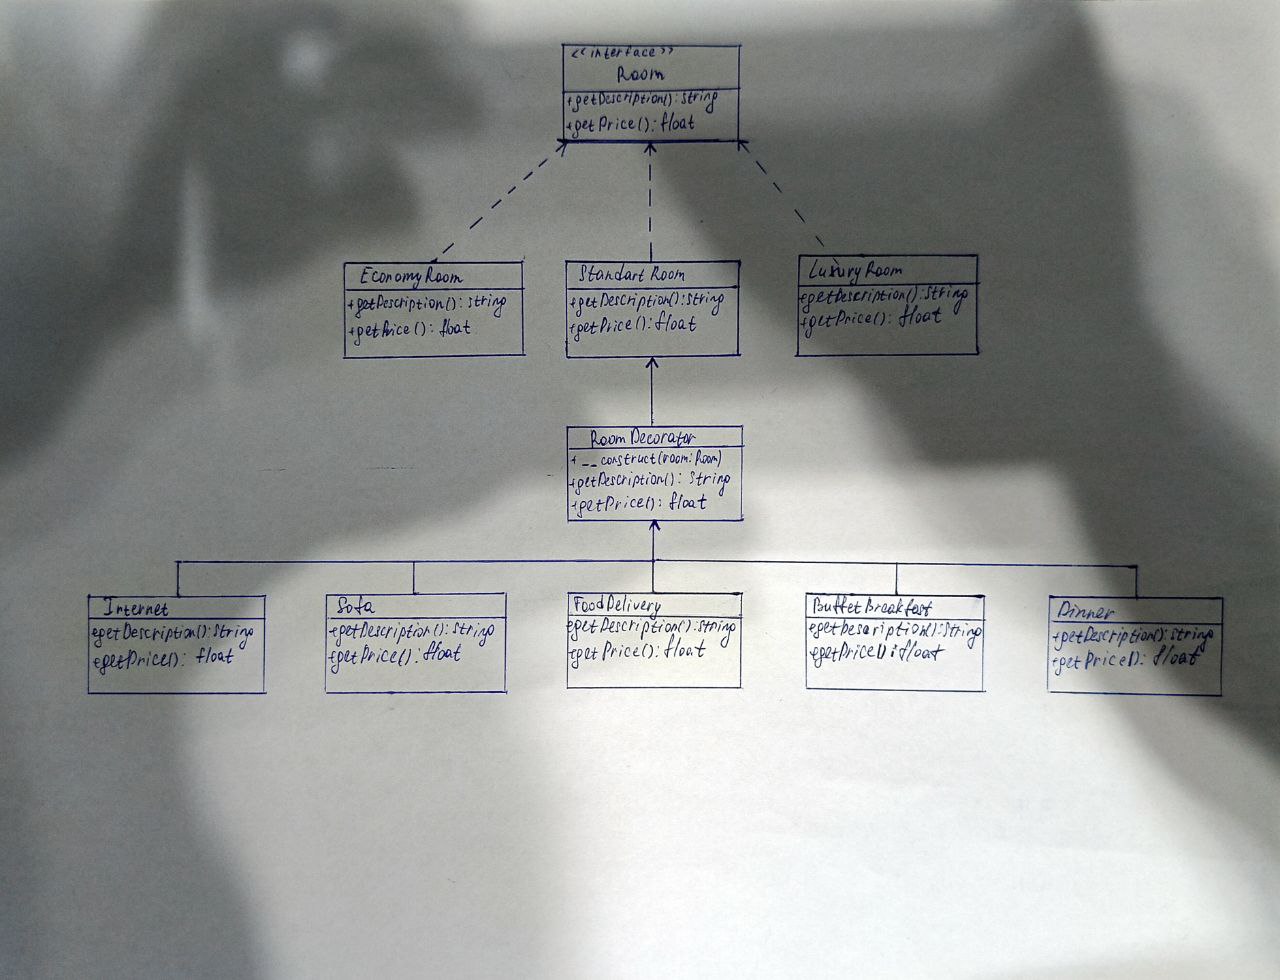 <<interface>>
Room
+getDescription(): String
+getPrice(): float
EconomyRoom
+getDescription(): String
+getPrice(): float
StandartRoom
+getDescription(): String
+getPrice(): float
LuxuryRoom
+getDescription(): String
+getPrice(): float
RoomDecorator
+__construct(room: Room)
+getDescription(): String
+getPrice(): float
Internet
+getDescription(): String
+getPrice(): float
Sofa
+getDescription(): String
+getPrice(): float
FoodDelivery
+getDescription(): String
+getPrice(): float
BuffetBreakfast
+getDescription(): String
+getPrice(): float
Dinner
+getDescription(): String
+getPrice(): float